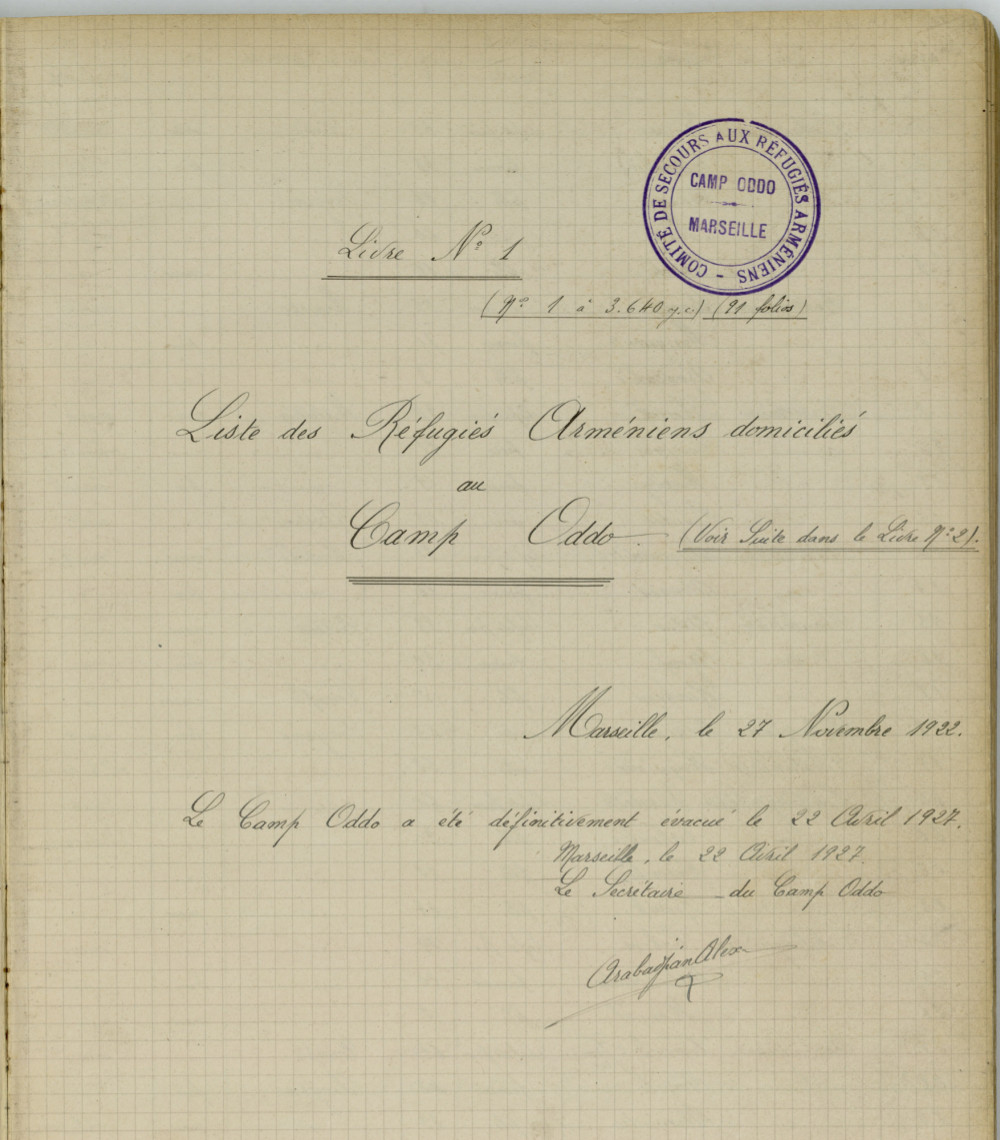 COMITÉ DE SECOURS AUX RÉFUGIÉS ARMÉNIENS -
CAMP ODDO
MARSEILLE
Livre Nº 1
(Nº 1 à 3.640 y.c.) (91 folios)
Liste des Réfugiés Arméniens domiciliés
au
Camp Oddo. (Voir Suite dans le Livre Nº 2).
Marseille, le 27 Novembre 1922.
Le Camp Oddo a été définitivement évacué le 22 Avril 1927.
Marseille, le 22 Avril 1927.
Le Secrétaire du Camp Oddo
Arabadjian Alex